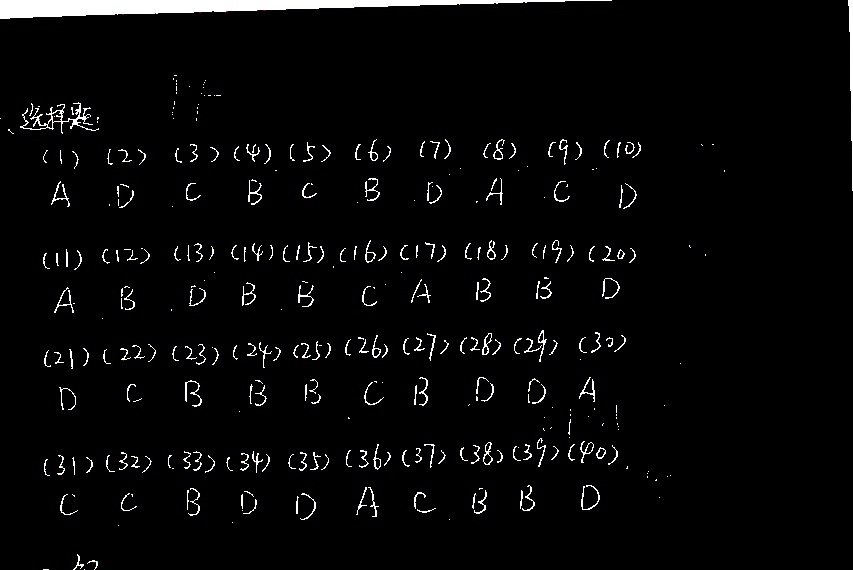 、选择题:
(1) (2) (3) (4) (5) (6) (7) (8) (9) (10)
A D C B C B D A C D
(11) (12) (13) (14) (15) (16) (17) (18) (19) (20)
A B D B B C A B B D
(21) (22) (23) (24) (25) (26) (27) (28) (29) (30)
D C B B B C B D D A
(31) (32) (33) (34) (35) (36) (37) (38) (39) (40)
C C B D D A C B B D